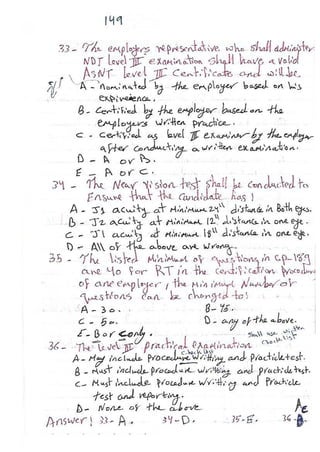 149
33- The employers representative who shall administer
NDT level III examination shall have a valid
ASNT level III Certificate and will be
A - Nominated by the employer based on his
experience.
B- Certified by the employer based on the
employers written practice.
C - Certified as level III examiner by the employer
after conducting a written examination.
D - A or B.
E - A or C.
34 - The Near Vision test shall be conducted to
Ensure that the candidate has!
A - J1 acuity at minimum 24" distance in both eyes.
B - J2 acuity at Minimum 12" distance in one eye.
C - J1 acuity at Minimum 18" distance in one eye.
D - All of the above are wrong.
35 - The listed Minimum of questions in CP-189
are 40 for RT in the certification procedure
of one employer, the minimum Number of
questions can be changed to!
A - 30.
C - 50.
D - any of the above.
E - B or C only.
Shall use written
Check list
36 - The level III practical examination
A - May include procedure writting and practicle test.
Check list
B - Must include procedure writting and practicle test.
C - Must include Procedure Writting and Practicle
test and reporting.
D - None of the above
Answer! 33- A. 34- D. 35- E. 36-